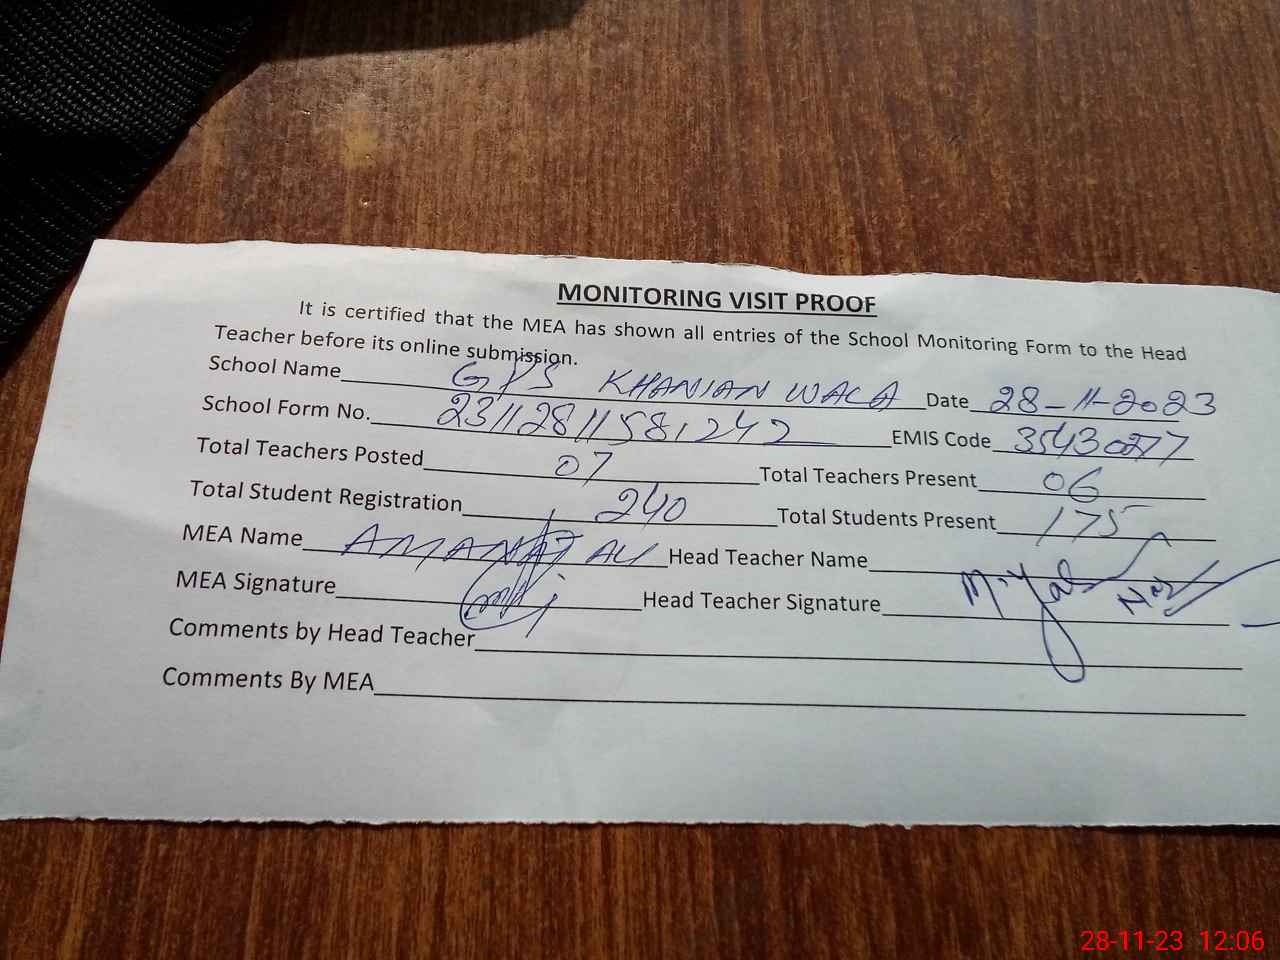 MONITORING VISIT PROOF
It is certified that the MEA has shown all entries of the School Monitoring Form to the Head
Teacher before its online submission.
School Name GPS KHANIAN WALA Date 28-11-2023
School Form No. 23112811581242 EMIS Code 35430277
Total Teachers Posted 07 Total Teachers Present 06
Total Student Registration 240 Total Students Present 175
MEA Name AMANAT ALI Head Teacher Name
MEA Signature Head Teacher Signature
Comments by Head Teacher
Comments By MEA
28-11-23 12:06